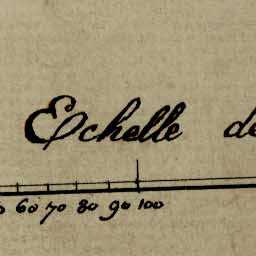 Echelle de
0 60 70 80 90 100